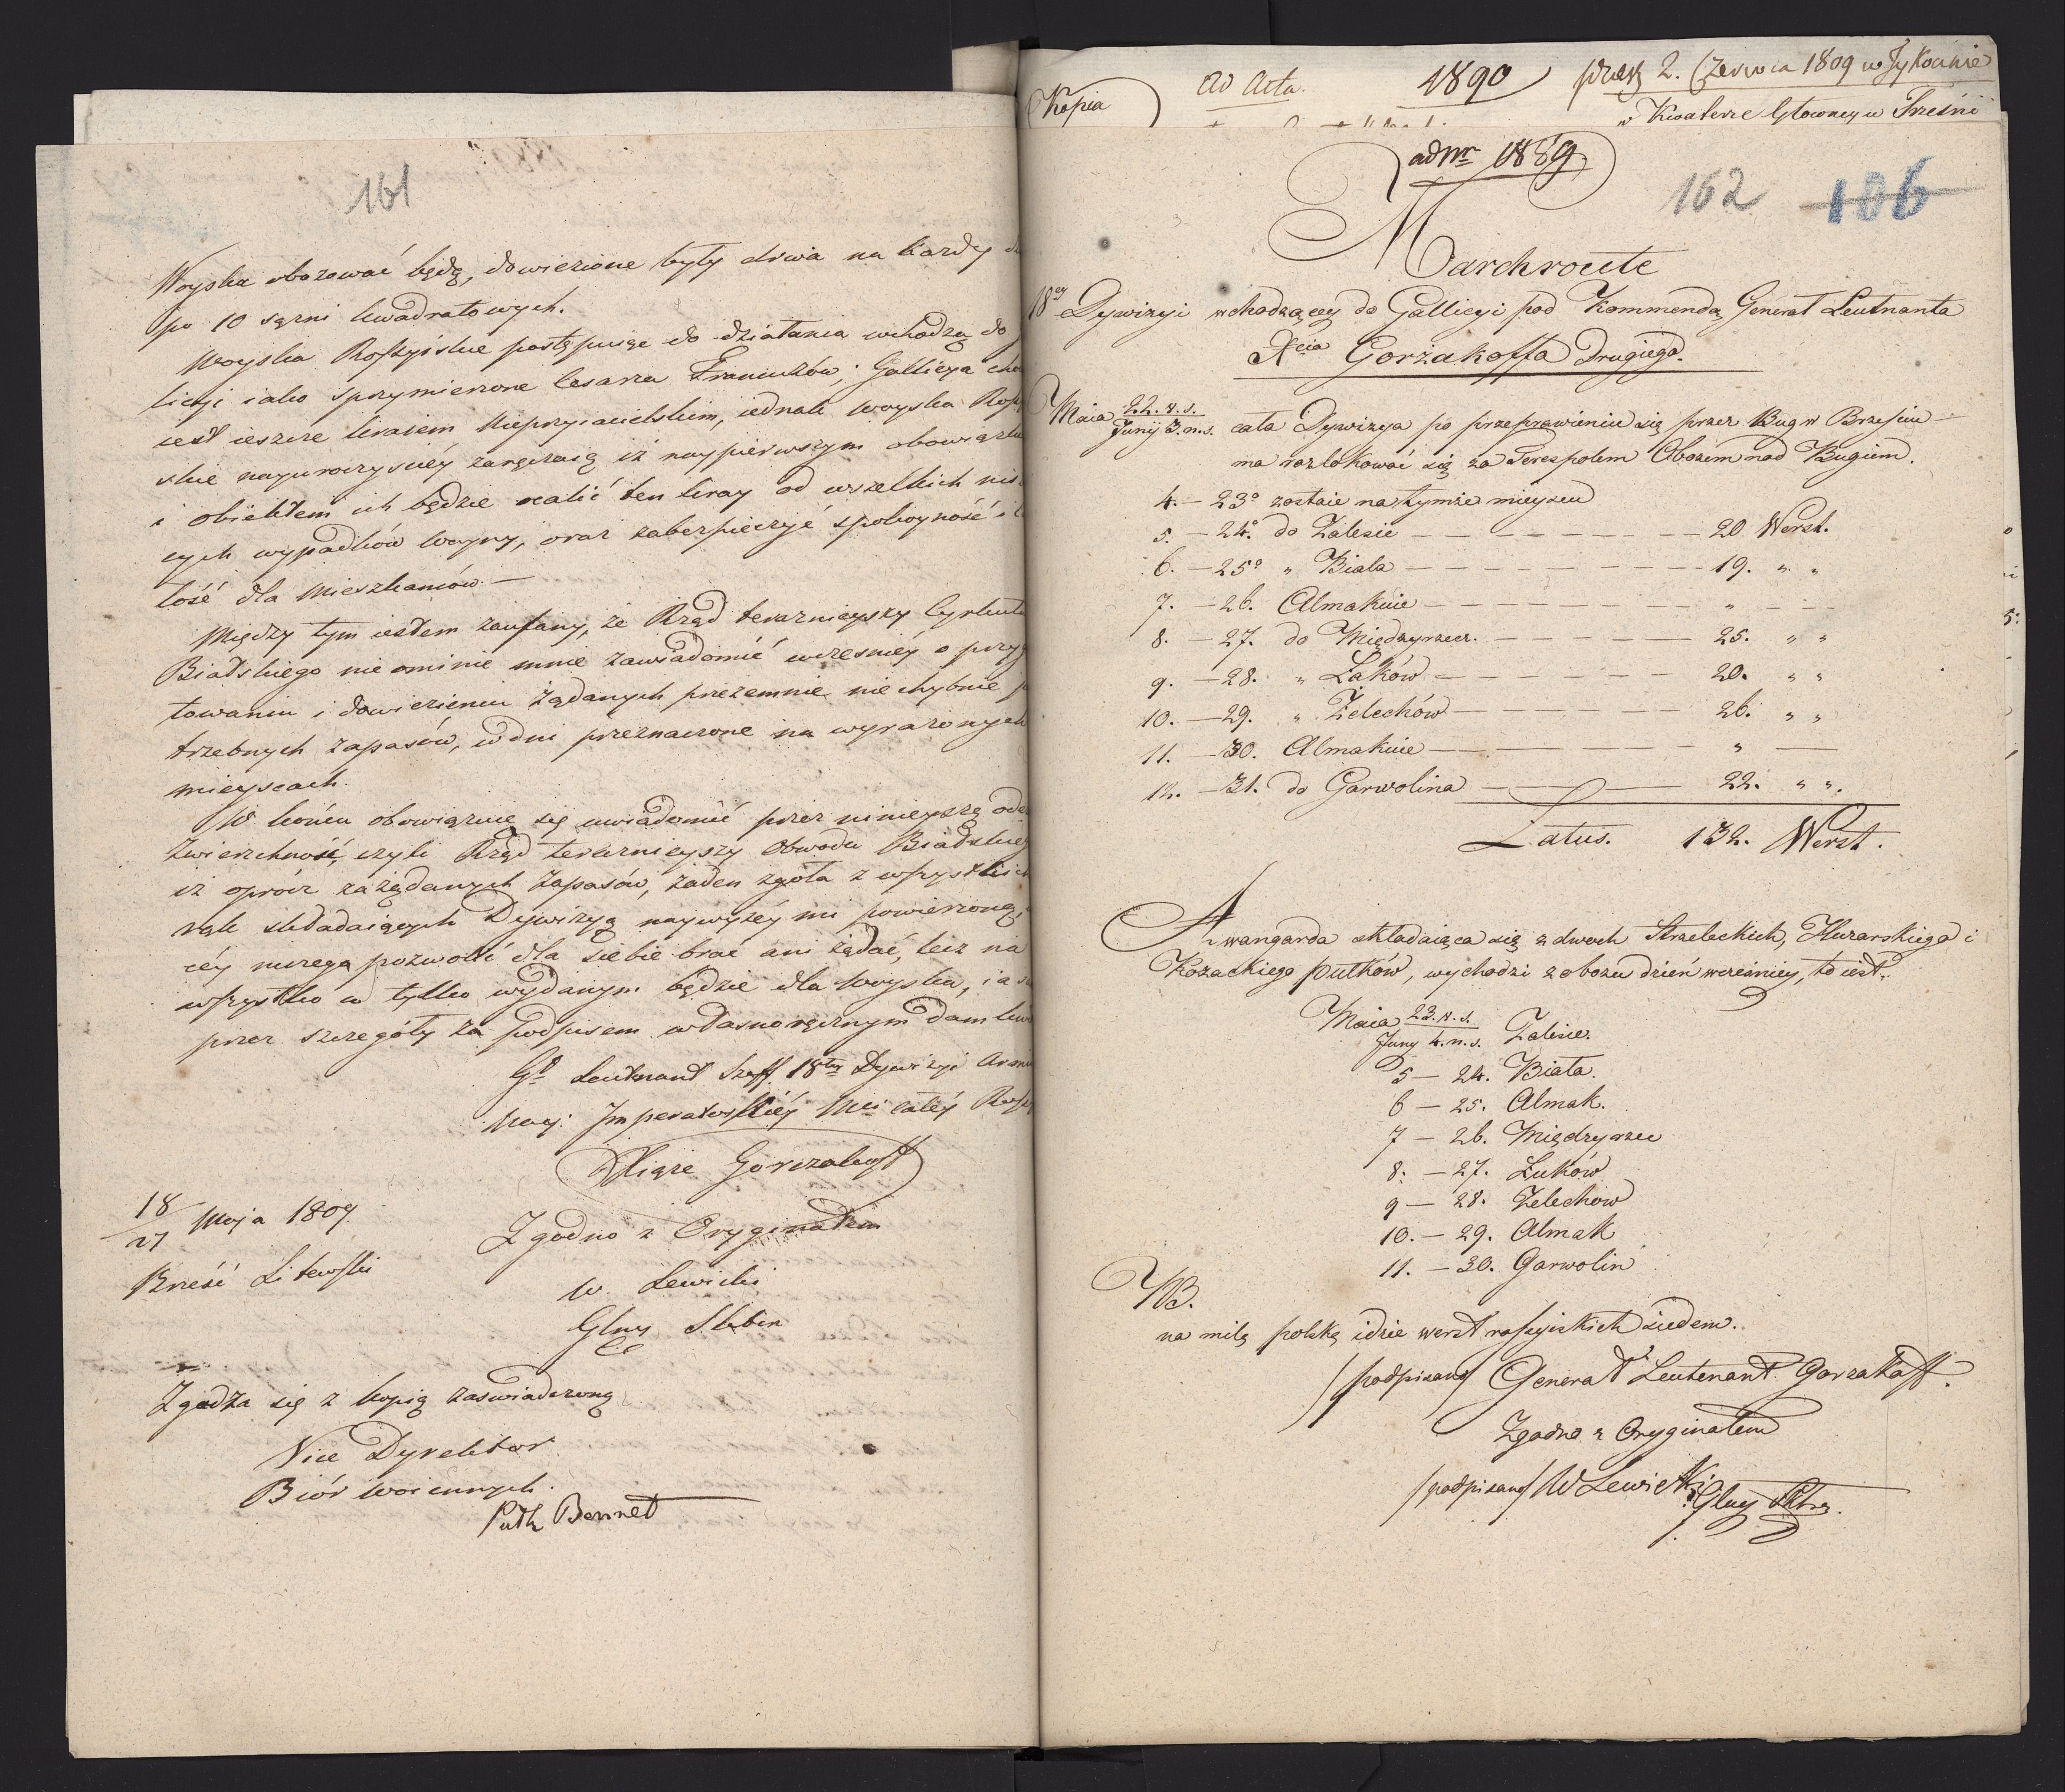 161
Woyska obozować będą, dowiezione były drwa na każdy
po 10 sążni kwadratowych.
Woyska Rossyiskie postępuiąc do działania wchodzą do
licyi iako sprzymierzone Cesarza Francuzów; Gallicya
iest ieszcze kraiem Nieprzyiacielskim, iednak woyska
skie nayuroczyściéy zaręczaią iż naypierwszym obowiązk
i obiektem ich będzie ocalić ten kray od wszelkich
cych wypadków woyny, oraz zabezpieczyć spokoyność i
łość dla Mieszkańców.—
Między tym iestem zaufany, że Rząd teraznieyszy Cyrkułu
Bialskiego nie ominie mnie zawiadomić wcześniéy o przy
towaniu i dowiezieniu żądanych przezemnie niechybnie
trzebnych zapasów, w dni przeznaczone na wyrażonych
mieyscach.
W końcu obowiązuię się uwiadomić przez ninieyszą
Zwierzchność, czyli Rząd teraznieyszy Obwodu Bialskieg
iż oprócz zażądanych zapasów, żaden zgoła z wszystkich
rąk składaiących Dywizyą naywyżéy mi powierzoną,
céy niczego pozwolić dla siebie brać ani żądać, lecz na
wszystko co tylko wydanym będzie dla woyska,
przez szczegóły za podpisem własnoręcznym dam
Gł Leutnant Szeff 18téy Dywizyi
Nay: Imperatorskiéy Mci całéy
Xiąże Gorczakoff
18/27 Maja 1809
Brześć Litewski
Zgodno z Oryginałem
W. Lewicki
Głny
Zgadza się z kopią zaświadczoną
Vice Dyrektor
Biór woiennych.
Pułk Bennet
Kopia
ad Acta.
1890
2. Czerwca 1809 w Tykocinie
w Kwaterze Głowney w Trześni
ad Nr 1889.
162 106
Marchroute
18ey Dywizyi wchodzącey do Gallicyi pod Kommendą Generał Leutnanta
Xcia Gorżakoffa Drugiego.
Maia 22. v. s.
Junij 3. n. s. cała Dywizya po przeprawieniu się przez Bug w Brześciu
ma rozlokować się za Terespolem Obozem nad Bugiem.
4. — 23° zostaie na tymże mieyscu
5. — 24° do Zalesie — 20 Werst.
6. — 25° „ Biała — 19. „ „
7. — 26. Almakuie — „ —
8. — 27. do Międzyrzecz. — 25. „ „
9. — 28. „ Łuków — 20. „ „
10. — 29. „ Żelechów — 26. „ „
11. — 30. Almakuie — „ —
12. — 31. do Garwolina — 22. „ „.
Latus. 132. Werst.
Awangarda składaiąca się z dwoch Strzeleckich, Huzarskiego i
Kozackiego pułków, wychodzi z obozu dzień wcześniey, to iest:
Maia 23. v. s.
Juny 4. n. s. Zalesie.
5 — 24. Biała.
6 — 25. Almak.
7 — 26. Międzyrzec
8. — 27. Łuków
9 — 28. Żelechow
10. — 29. Almak
11. — 30. Garwolin
NB.
na milę polską idzie werst rossyiskich siedem.
/podpisano/ Generał Leutenant Gorzakoff.
Zgodno z Oryginałem
/podpisano/ W Lewicki
Głny Sktrz.